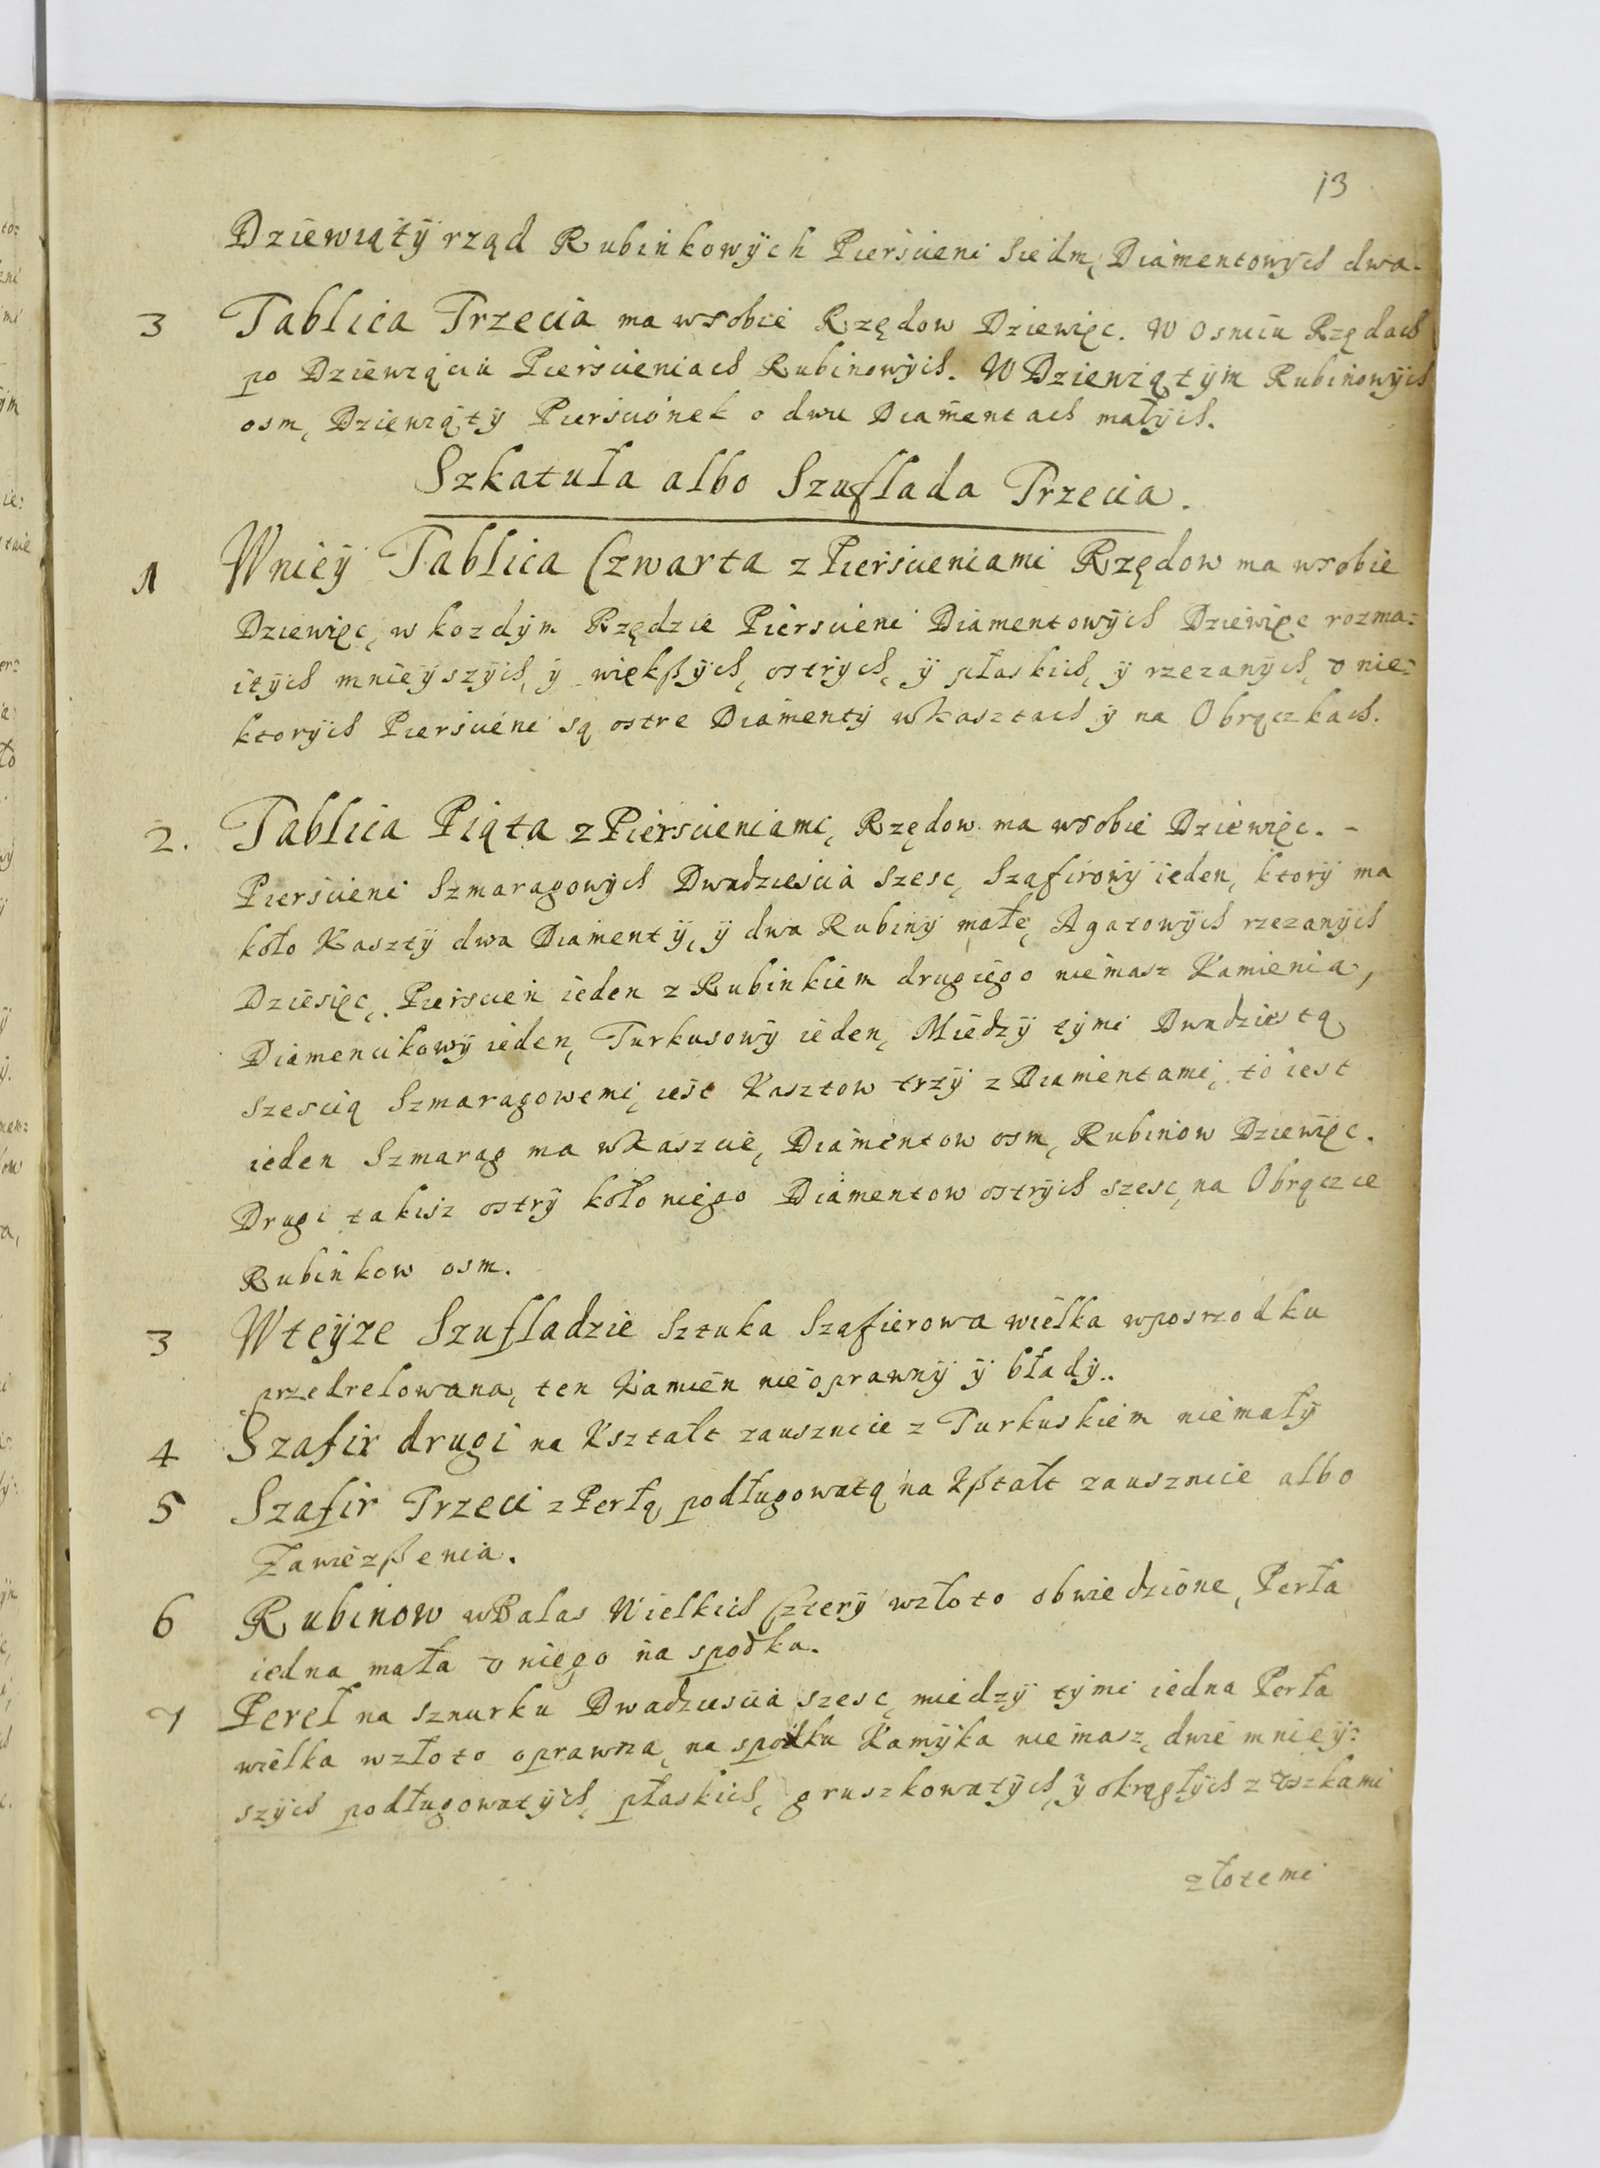 13
Dziewiąty rząd Rubinkowych Pierscieni Siedm, Diamentowych dwa.
3 Tablica Trzecia ma wsobie Rzędow Dziewięc. W Osmiu Rzędach
po Dziewiąciu Pierscieniach Rubinowych. W Dziewiątym Rubinowych
osm, Dziewiąty Piersciónek o dwu Diamentach małych.
Szkatuła albo Szuflada Trzecia.
1 Wniey Tablica Czwarta z Pierscieniami Rzędow ma wsobie
Dziewięc, w kozdym Rzędzie Pierscieni Diamentowych Dziewięc rozma:
itych mnieyszych, y więkßych, ostrych, y płaskich, y rzezanych, v nie:
ktorych Pierscieni są ostre Diamenty wkasztach y na Obrączkach.
2. Tablica Piąta z Pierscieniami, Rzędow ma wsobie Dziewięc. -
Pierscieni Szmaragowych Dwadziescia Szesc, Szafirowy ieden, ktory ma
koło Kaszty dwa Diamenty, y dwa Rubiny małe, Agatowych rzezanych
Dziesięc, Pierscien ieden z Rubinkiem drugiego niemasz Kamienia,
Diamencikowy ieden, Turkusowy ieden, Miedzy tymi Dwudziestą
szescią Szmaragowemi, iest Kasztow trzy z Diamentami, to iest
ieden Szmarag ma wKaszcie, Diamentow osm, Rubinow Dziewięc.
Drugi takisz ostry koło niego Diamentow ostrych szesc, na Obrączce
Rubinkow osm.
3 Wteyze Szufladzie Sztuka Szafierowa wielka wposrzodku
przedrelowana, ten Kamien nieoprawny y błady..
4 Szafir drugi na Kształt zausznice z Turkuskiem niemały
5 Szafir Trzeci z Perłą podługowatą na Kßtałt zausznice albo
Zawiezßenia.
6 Rubinow wBalas Wielkich Cztery wzłoto obwiedzione, Perła
iedna mała v niego na spodku.
7 Pereł na sznurku Dwadziescia szesc, miedzy tymi iedna Perła
wielka wzłoto oprawna, na spodku Kamyka niemasz, dwie mniey:
szych podługowatych, płaskich, gruszkowatych, y okrągłych z vszkami
złotemi